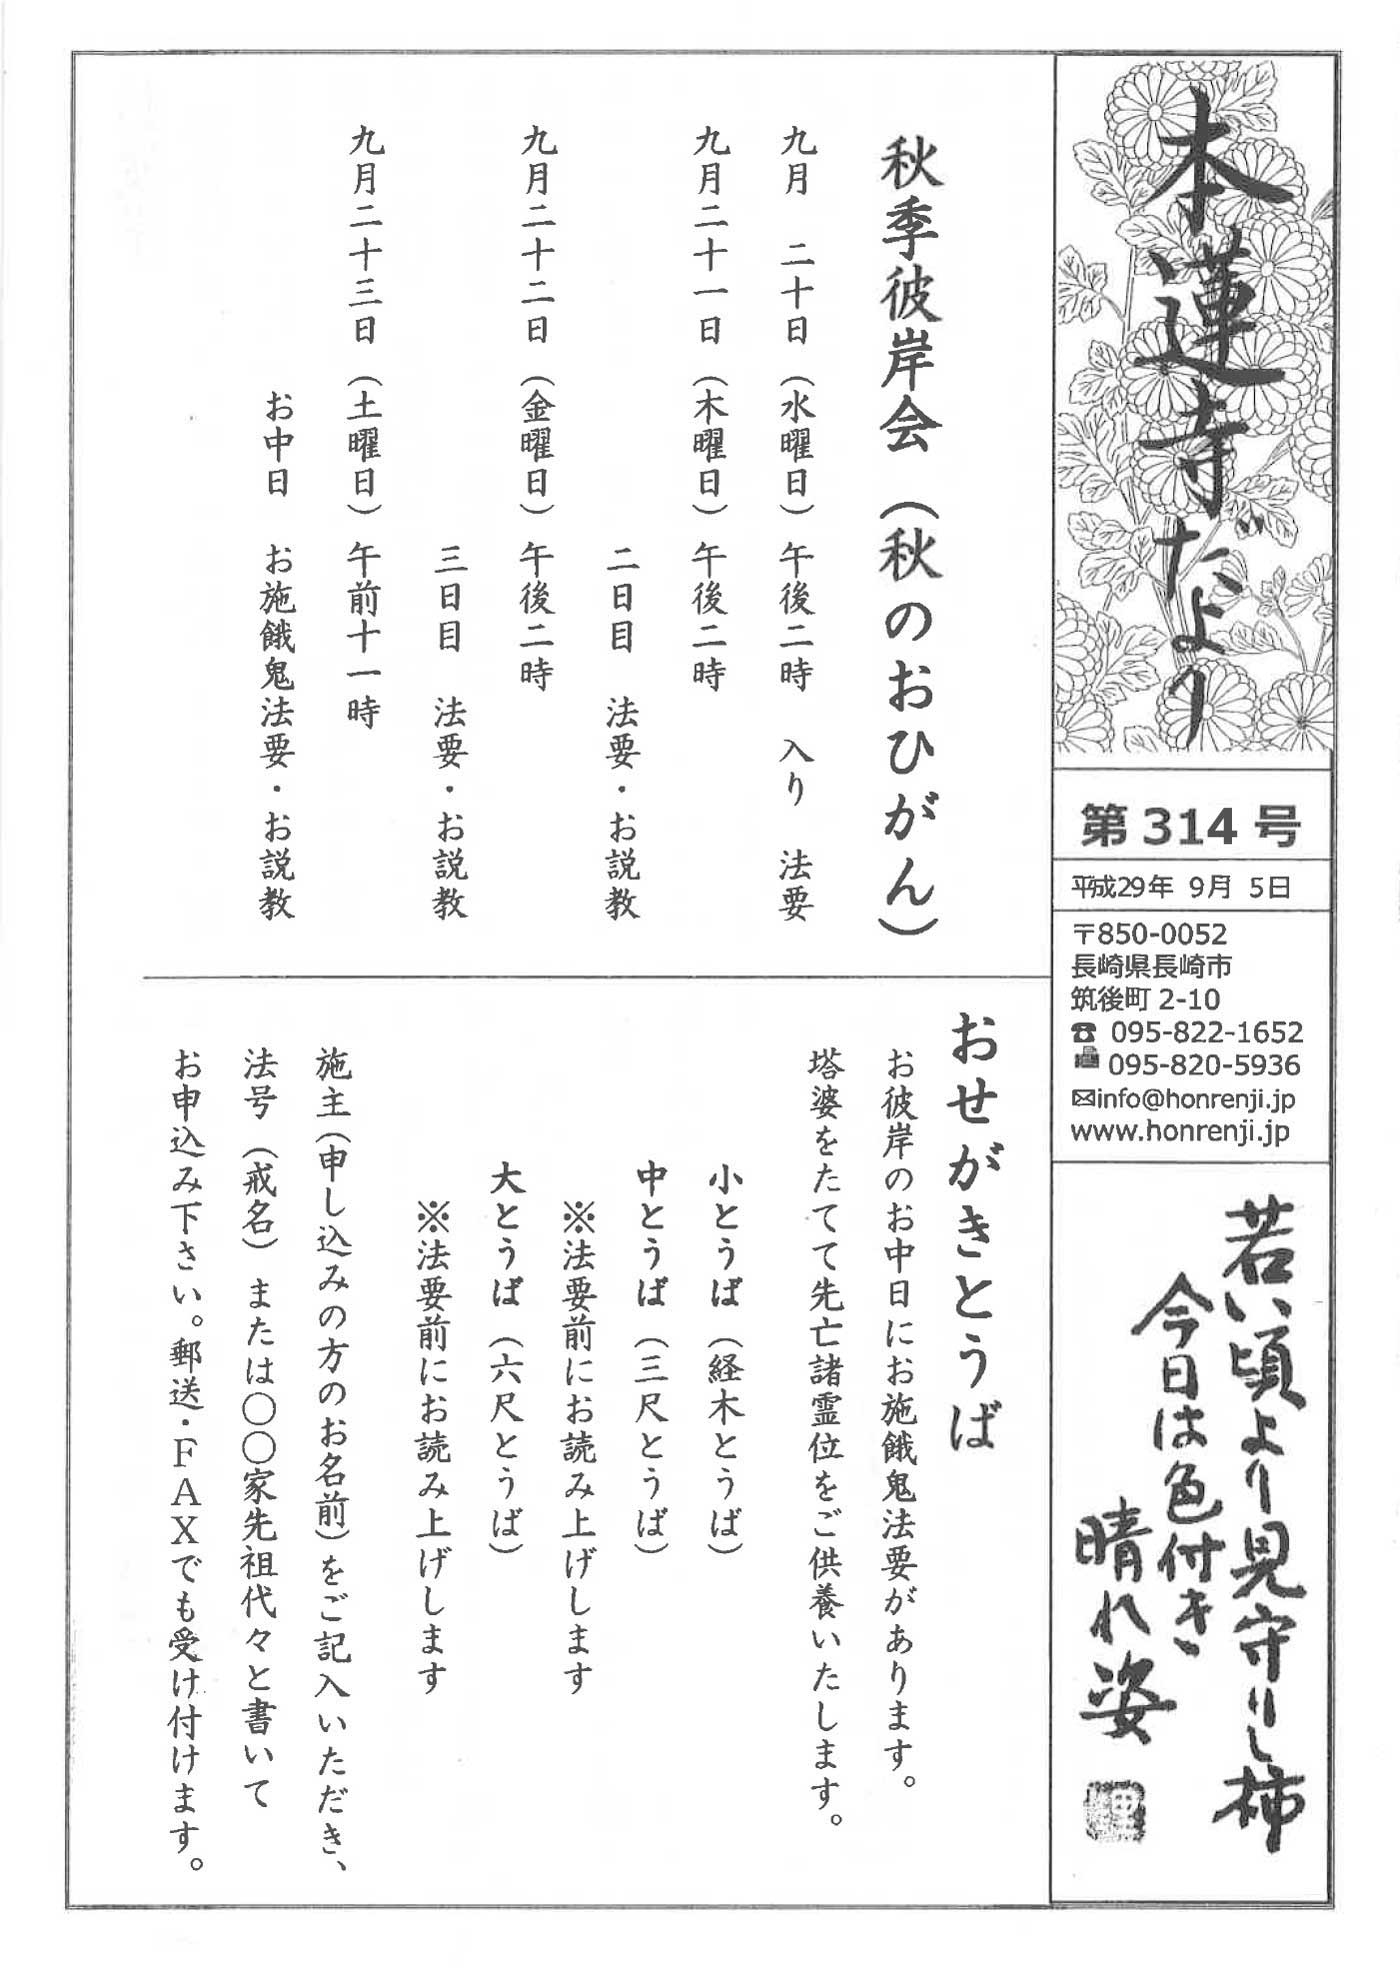 本蓮寺だより
第314号
平成29年 9月 5日
〒850-0052
長崎県長崎市
筑後町 2-10
☎ 095-822-1652
095-820-5936
✉info@honrenji.jp
www.honrenji.jp
若い頃より見守りし柿
今日は色付き
晴れ姿
秋季彼岸会（秋のおひがん）
九月　二十日（水曜日）午後二時　入り　法要
九月二十一日（木曜日）午後二時
二日目　法要・お説教
九月二十二日（金曜日）午後二時
三日目　法要・お説教
九月二十三日（土曜日）午前十一時
お中日　お施餓鬼法要・お説教
おせがきとうば
お彼岸のお中日にお施餓鬼法要があります。
塔婆をたてて先亡諸霊位をご供養いたします。
小とうば（経木とうば）
中とうば（三尺とうば）
※法要前にお読み上げします
大とうば（六尺とうば）
※法要前にお読み上げします
施主（申し込みの方のお名前）をご記入いただき、
法号（戒名）または〇〇家先祖代々と書いて
お申込み下さい。郵送・ＦＡＸでも受け付けます。